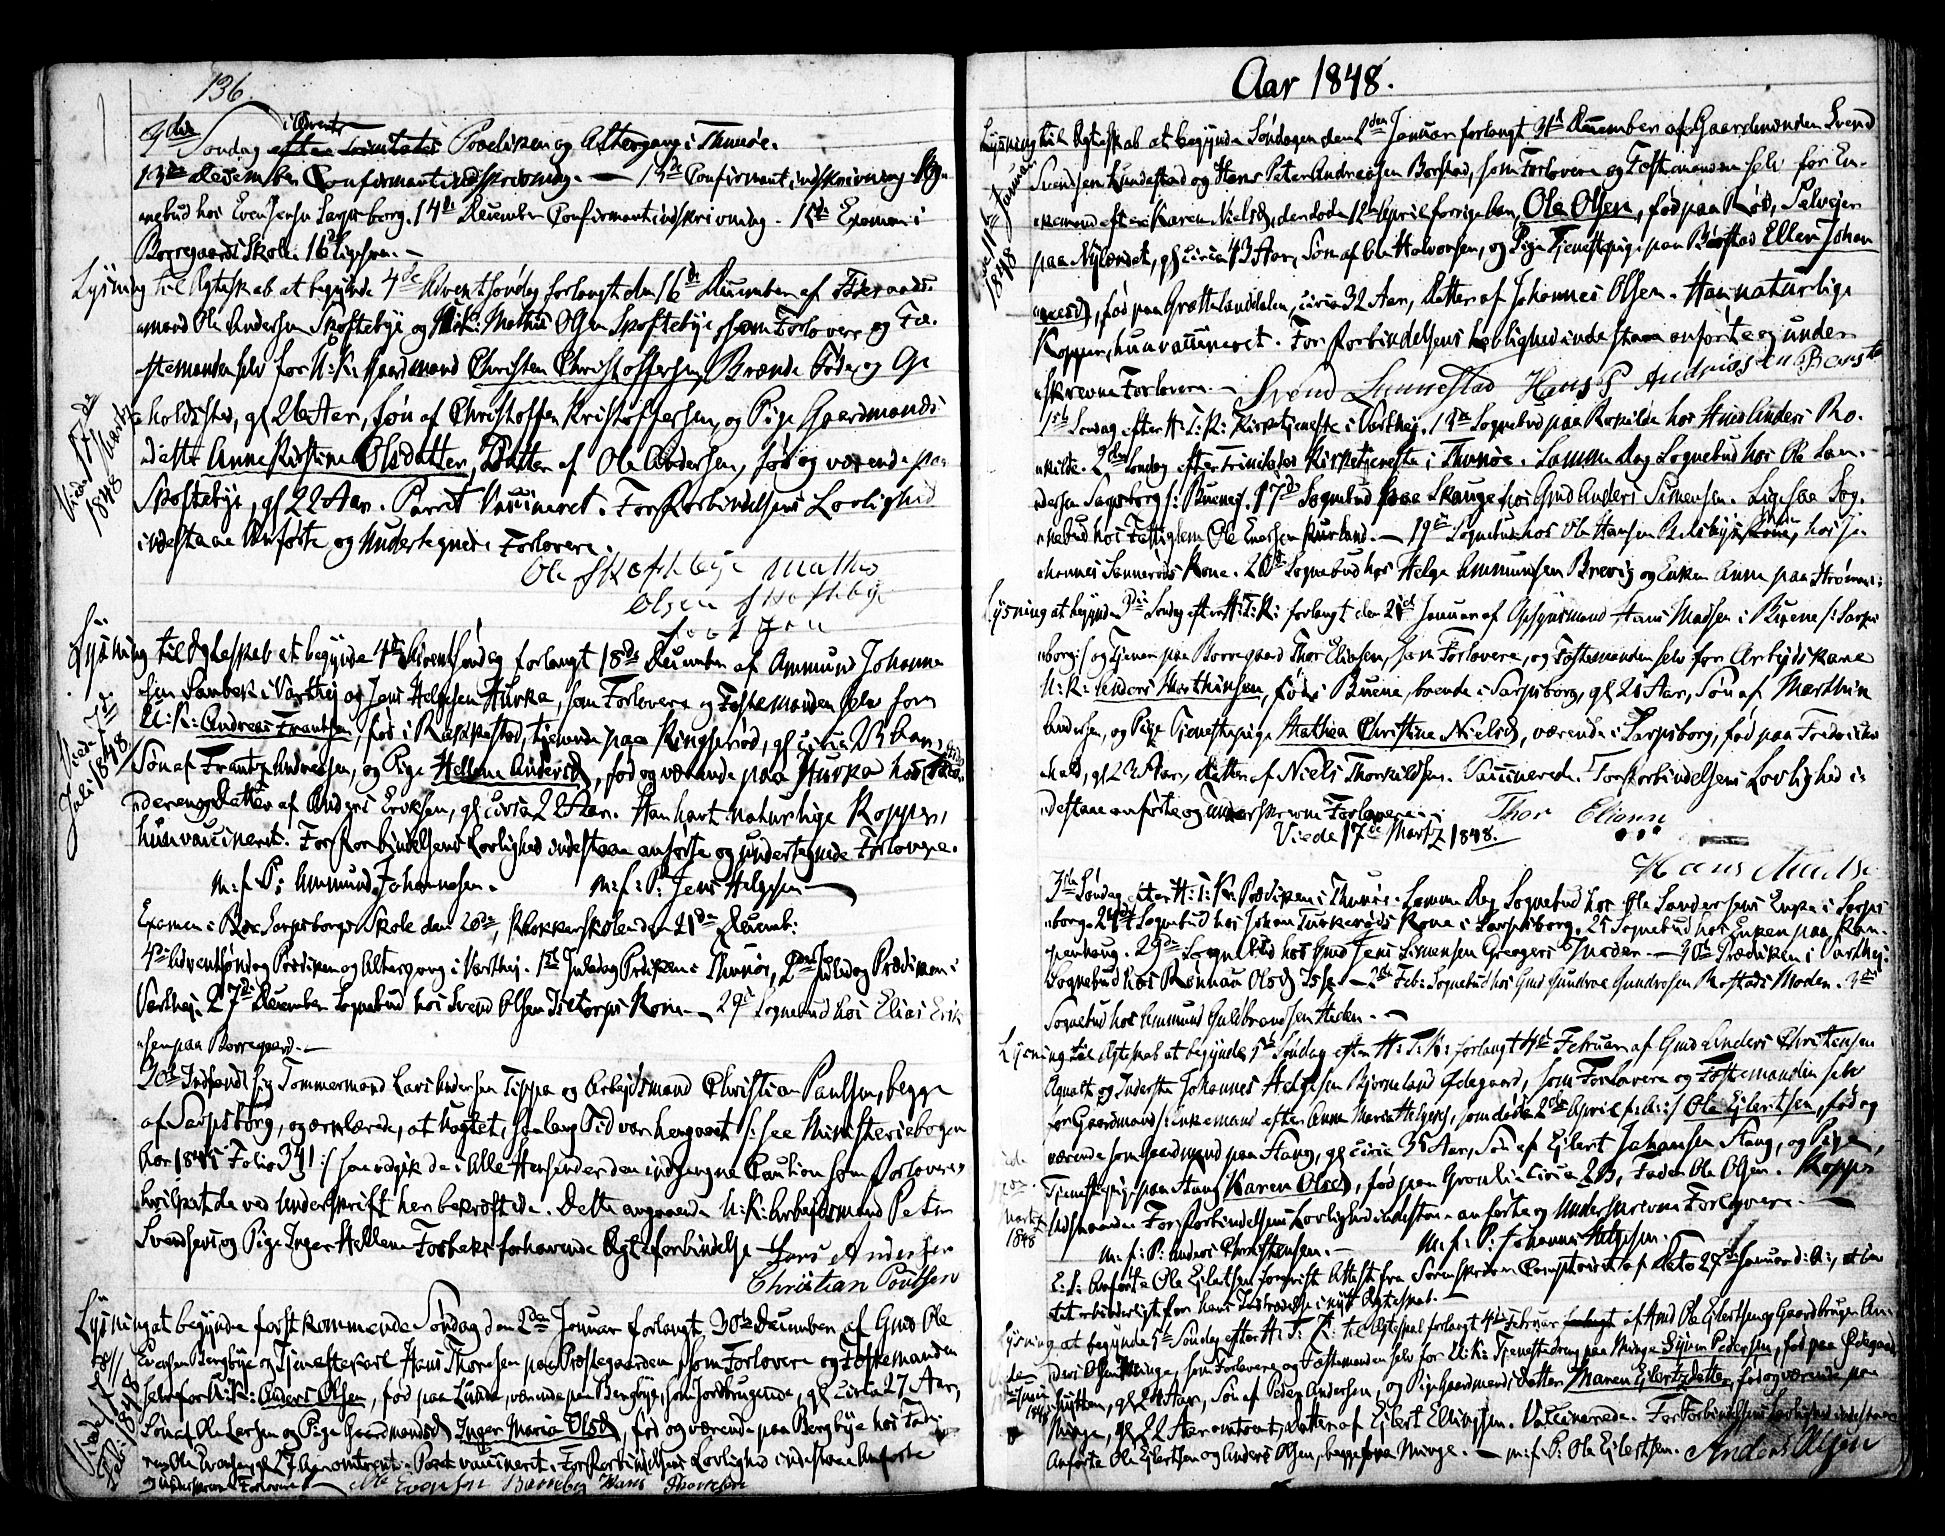 136
3die Søndag i Advent Prædiken og Altergang i Thunøe.
13de December Confirmantindskrivning. — 13de Confirmantindskrivning. Sog-
nebud hos Even Jensen Sarpsborg. 14de December Confirmantindskrivning. 15de Examen i
Borregaards Skole. 16
Lysning til Ægteskab at begynde 4de Advent søndag forlangt den 16de December af Føderaads-
mand Ole Andersen Skoftebye og Mathis Olsen Skoftebye som Forlovere og Fæ-
stemanden selv for U: K: Gaardmand Christen Christoffersen, Brænde Føde og Op-
holdssted, gl 26 Aar, Søn af Christoffer Kristoffersen, og Pige Gaardmands-
datter Anne Kirstine Olsdatter, Datter af Ole Andersen, født og værende paa
Skoftebye, gl 22 Aar. Parret Vaccineret. For Forbindelsens Lovlighed
indestaae Anførte og Undertegnede Forlovere.
Ole Skoftebye Mathis
Olsen Skoftebye
Viede 17de Martz
1848
Lysning til Ægteskab at begynde 4de Advent søndag forlangt 18de December af Ammund Johanne-
sen i Varthej og Jens Helgesen Hurka, som Forlovere og Fæstemanden selv for
U: K: Andreas Frantsen, fød i Rakkestad, tjenende paa Ringsrød, gl circa 23 Aar,
Søn af Frantz Andreasen, og Pige Hellene Andersd, fød og værende paa Hurka hos
Forældrene, Datter af Anders Eriksen, gl circa 22 Aar. Han havt naturlige Kopper,
hun vaccineret. For Forbindelsens Lovlighed indestaae anførte og undertegnede Forlovere.
M: f: P: Ammund Johannesen. M: f: P: Jens Helgesen
Viede 7de
Juli 1848
Examen i Sarpsborgs Skole den 20de, Klokkerskolen den 21de Decemb:
4de Advent søndag Prædiken og Altergang i Varthej. 1ste Juledag Prædiken i Thunøe, 2den Juledag Prædiken i
Varthej. 27de December Sognebud hos Svend Olsen Kone. — 29de Sognebud hos Elias Erik-
sen paa Borregaard. —
30te Indfandt sig Tømmermand Lars Andersen Tippa og Arbejdsmand Christian Paulsen, begge
af Sarpsborg, og erklærede, at Uagtet, saalang Tid var hengaaet /: see Ministerialbogen
Aar 1845 Folio 341 :/ saa vedgik de i Alle Henseender den indgangne Caution som Forlovere,
hvilket de ved Underskrift her bekræftede. Dette angaaende U: K: Arbejdsmand Peder
Svendsens og Pige Inger Hellene forhavende Ægteforbindelse
Lars Andersen
Christian Poulsen
Lysning at begynde førstkommende Søndag den 2den Januar forlangt 30te December af Gmd Ole
Evensen Bergbye og Tjenestekarl Hans Thoresen paa Præstegaarden, som Forlovere og Fæstemanden
selv for U: K: Anders Olsen, fød paa Lunde, værende paa Bergbye, som Jordbrugende, gl circa 27 Aar,
Søn af Ole Larsen og Pige Gaardmandsd Inger Maria Olsd, fød og værende paa Bergbye hos Fade-
ren Ole Evensen, gl 27 Aar omtrent. Parret vaccineret. For Forbindelsens Lovlighed indestaae Anførte
og Underskrevne Forlovere
Ole Evensen Hans Thoresen
Viede
Febr: 1848
Aar 1848.
Lysning til Ægteskab at begynde Søndagen den 2den Januar forlangt 31te December af Gaardmanden Svend
Svendsen Lundestad og Hans Peter Andreasen Borstad, som Forlovere og Fæstemanden selv for En-
kemand efter Karen Nielsd, der døde 12te April forrige Aar, Ole Olsen, fød paa Rød, Selvejer
paa Nylændet, gl circa 43 Aar, Søn af Ole Halvorsen, og Pige Tjenestepige paa Borstad Ellen Johan-
nesd, fød paa circa 32 Aar, Datter af Johannes Olsen. Han naturlige
Kopper, hun vaccineret. For Forbindelsens Lovlighed indestaae anførte og under-
skrevne Forlovere. —
Svend Lunnestad Hans P Andriassen Borsta
1848
1ste Søndag efter H: T: K: Kirketjeneste i Varthej.
2den Søndag efter Trinitatis Kirketjeneste i Thunøe. Samme Dag Sognebud hos Ole San-
dersen Sarpsborg 17de Sognebud paa Skauge hos Gmd Anders Simensen. Ligesaa Sog-
nebud hos Fattiglem Ole Kurland. — 19de Sognebud hos Ole Hansen Kone, hos Jo-
hannes Sannerøds Kone. 20de Sognebud hos Helge Ammundsen Brevig og Enken Anne paa
Lysning at begynde 3die Søndag efter H: T: K: forlangt den 21de Januar af Hans Madsen i Buene /: Sarps-
borg :/ og Tjener paa Borregaard Thor Eliasen, som Forlovere, og Fæstemanden selv for Arbejdskarl
U: K: Anders Marthinsen, fød i Buene, boende i Sarpsborg, gl 21 Aar, Søn af Marthin
Andersen, og Pige Tjenestepige Mathea Christine Nielsd, værende i Sarpsborg, fød paa Frederiks-
hald, gl 23 Aar, Datter af Niels Thorkildsen. Vaccinerede. For Forbindelsens Lovlighed in-
destaae anførte og Underskrevne Forlovere.
Thor Eliasen
Viede 17de Martz 1848.
Hans Madsen
3die Søndag efter H: T: K: Prædiken i Thunøe. Samme Dag Sognebud hos Ole Sandersens Enke i Sarps-
borg. 24de Sognebud hos Johan Kone i Sarpsborg. 25 Sognebud hos Enken paa
29de Sognebud hos Gmd Jens Simensen Moder. — 30te Prædiken i Varthej.
Sognebud hos Rønnau Olsd — 2den Feb: Sognebud hos Gmd Gundroe Gundrosen Moder. 3die
Sognebud hos Ammund Guldbrandsen Heden. —
Lysning til Ægteskab at begynde 5te Søndag efter H: T: K: forlangt 4de Februar af Gmd Anders Christensen
og Inderste Johannes Helgesen Bjørneland Ødegaard, som Forlovere og Fæstemanden selv
for Gaardmand /: Enkemand efter Anne Maria Helgesd, som døde 2den April f: A: :/ Ole Ejlertsen, fød og
værende som Gaardmand paa Stang, gl circa 35 Aar, Søn af Ejlert Johansen Stang, og Pige,
Tjenestepige paa Stang Karen Olsd, fød paa Gronli circa 28, Fader Ole Olsen. Kopper
For Forbindelsens Lovlighed indestaae anførte og Underskrevne Forlovere. —
M: f: P: Anders Christensen. — M: f: P: Johannes Helgesen.
Martz
1848
Anførte Ole Ejlertsen foreviist Attest fra Sorenskriver Comptoiret af Dato 27de Januar d: A:, at In-
tet er hinderligt for hans Indtrædelse i nyt Ægteskab.
Lysning at begynde 5te Søndag efter H: T: K: til Ægteskab forlangt 4de Februar af Gmd Ole Ejlertsen og Gaardbruger An-
ders Olsen Minge, som Forlovere, og Fæstemanden selv for U: K: Tjenestedreng paa Minge Pedersen, fød paa Ødegaard
hytten, gl 24 Aar, Søn af Peder Andersen, og Pige Gaardmandsdatter Maren Ejlertsdatter, fød og værende paa
Minge, gl 22 Aar omtrent, Datter af Ejlert Ellingsen. Vaccinerede. For Forbindelsens Lovlighed indestaae
Anførte Ole Ejlertsen og Anders Olsen, begge fra Minge. — M: f: P: Ole Ejlertsen. Anders Olsen
1848